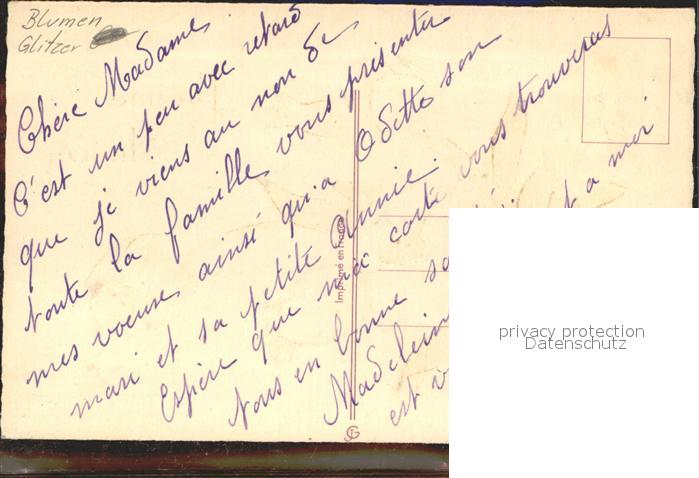 Blumen
Glitzer
Chère Madame
C'est un peu avec retard
que je viens au non de
toute la famille vous présenter
mes voeux ainsi qu'a Odette son
mari et sa petite Annie.
Espère que ma carte vous trouveras
tous en bonne
Madelein
est
a moi
Imprimé en France
privacy protection
Datenschutz